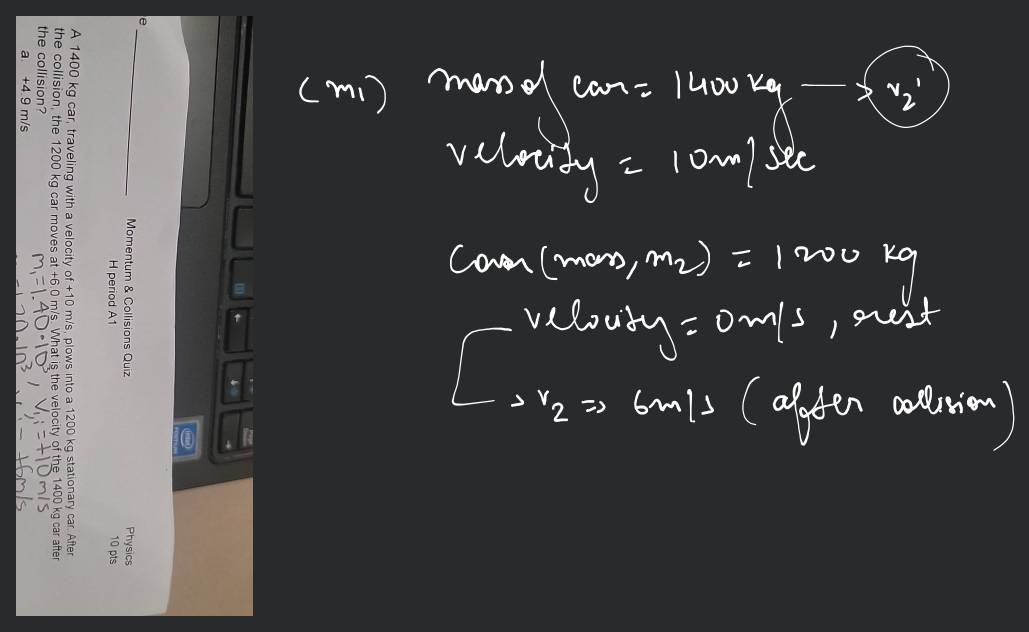 e
Momentum & Collisions Quiz
H period A1
Physics
10 pts
A 1400 kg car, traveling with a velocity of +10 m/s, plows into a 1200 kg stationary car. After
the collision, the 1200 kg car moves at +6.0 m/s. What is the velocity of the 1400 kg car after
the collision?
a. +4.9 m/s
m₁=1.40·10³, V₁ᵢ=+10m/s
+6m/s
intel
(m₁) mass of car = 1400 kg → v₂'
velocity = 10m/sec
Car (mass, m₂) = 1200 kg
velocity = 0m/s, rest
→ v₂ => 6m/s (after collision)